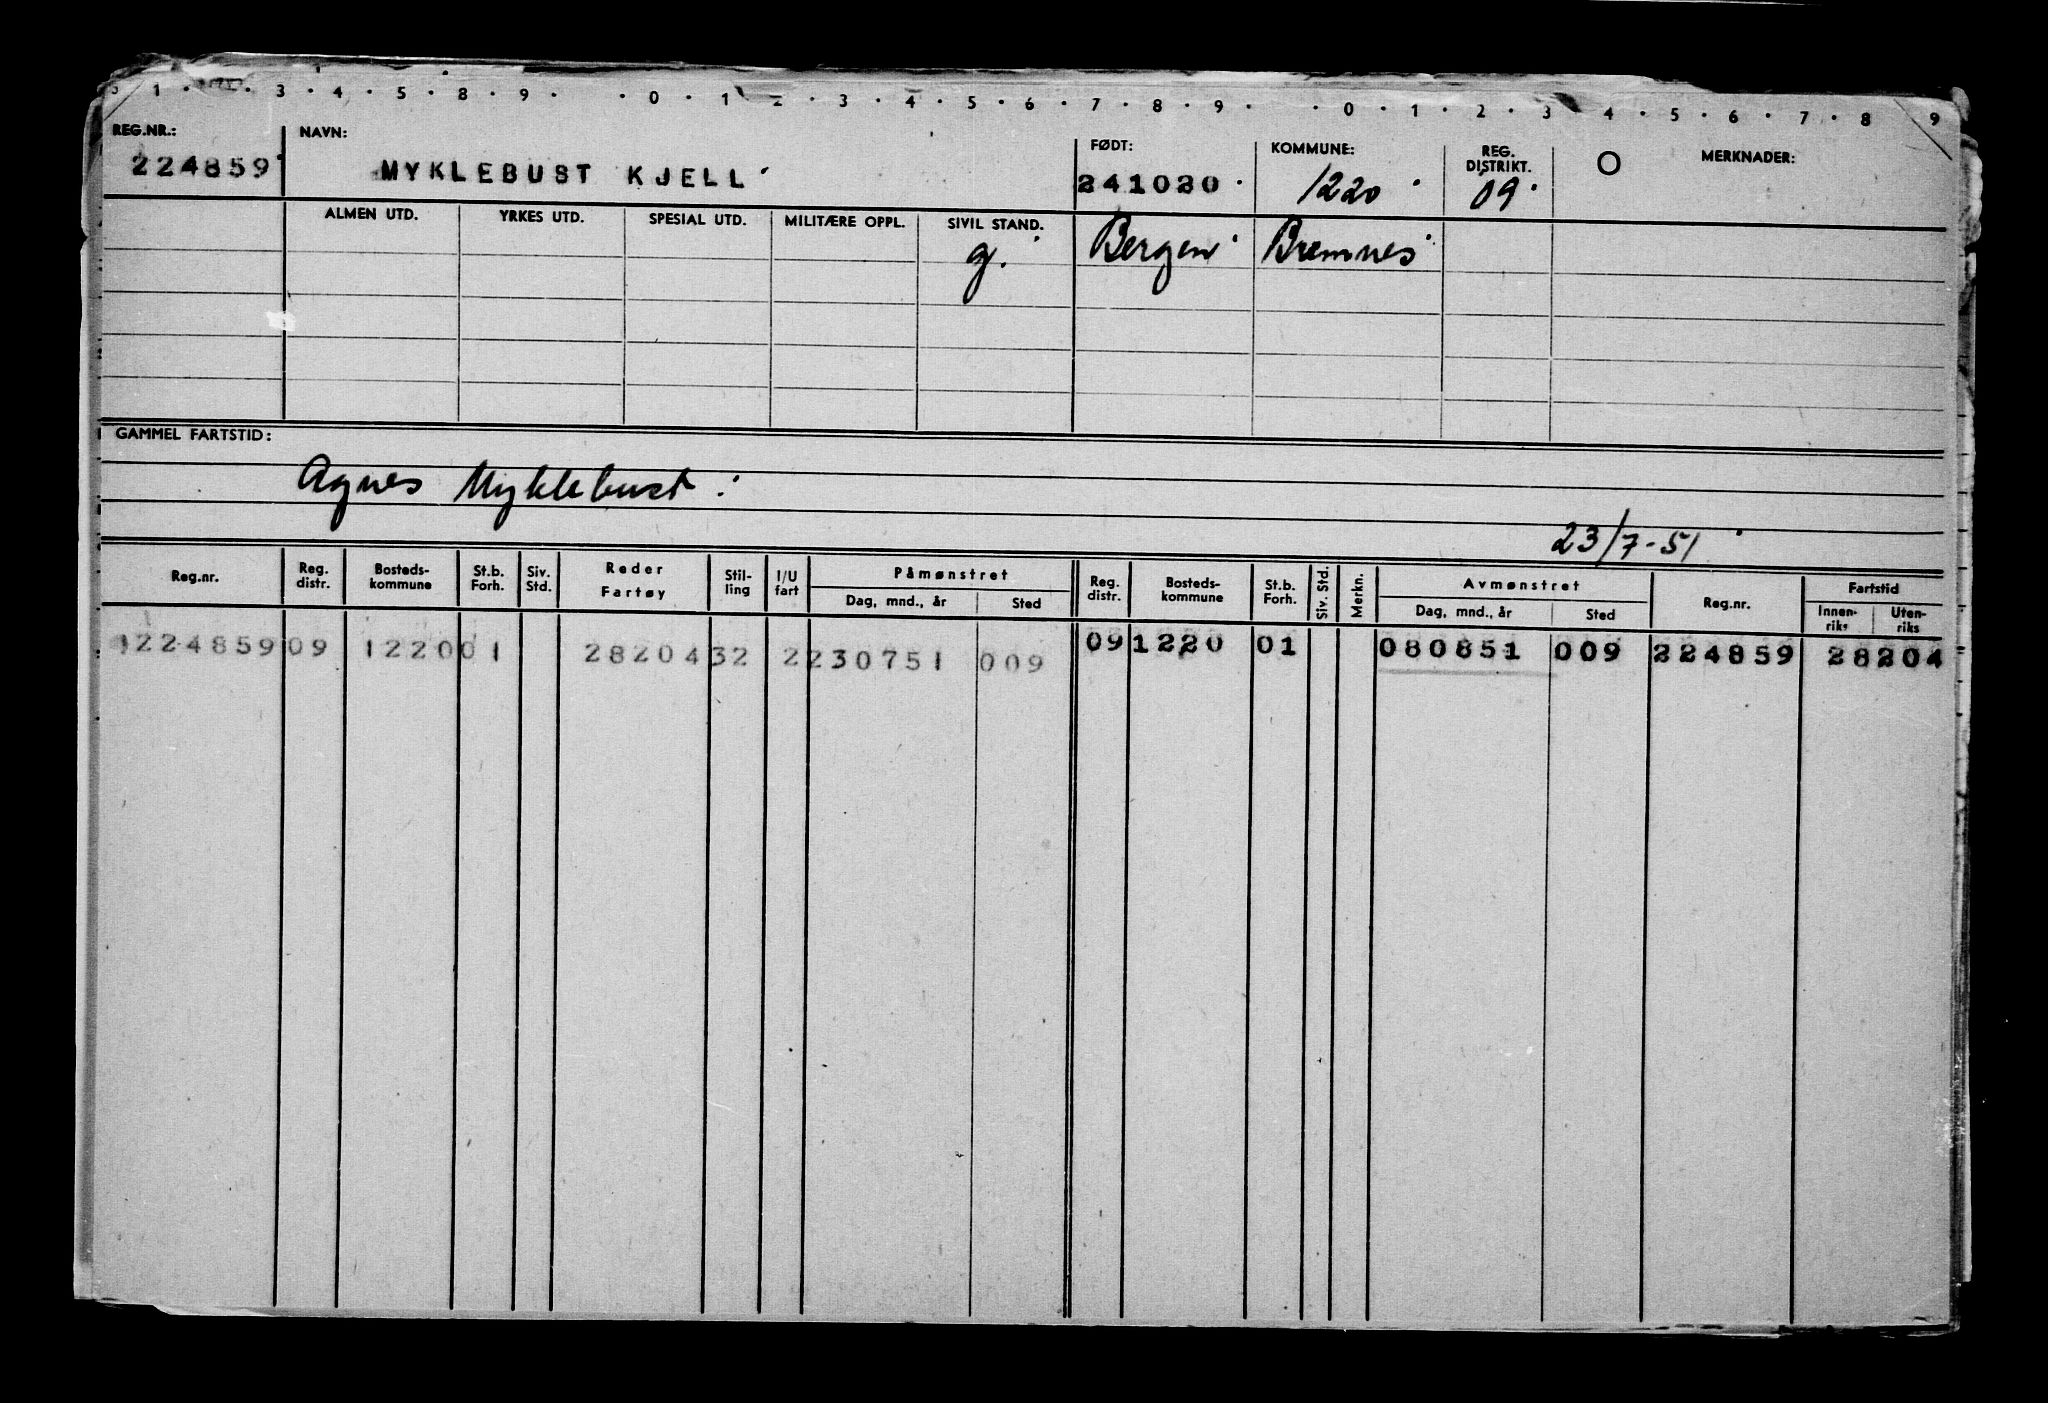 1 . . 3 . 4 . 5 . 8 . 9 . . 0 . 1 2 . 3 . 4 . 5 . 6 . 7 . 8 . 9 . . 0 . 1 . 2 . 3 4 . 5 . 6 . 7 . 8 9
REG.NR.: NAVN: FØDT: KOMMUNE: REG. DISTRIKT. O MERKNADER:
224859 MYKLEBUST KJELL 241020 1220 09
ALMEN UTD. YRKES UTD. SPESIAL UTD. MILITÆRE OPPL. SIVIL STAND.
g. Bergen Bremnes
GAMMEL FARTSTID:
Agnes Myklebust
23/7-51
Reg.nr. Reg. distr. Bosteds-kommune St.b. Forh. Siv. Std. Reder Fartøy Stil-ling I/U fart Påmønstret Reg. distr. Bosteds-kommune St.b. Forh. Siv. Std. Merkn. Avmønstret Reg.nr. Fartstid
Dag, mnd., år Sted Dag, mnd., år Sted Innen-riks Uten-riks
1224859 09 1220 01 28204 32 2 230751 009 09 1220 01 080851 009 224859 28204